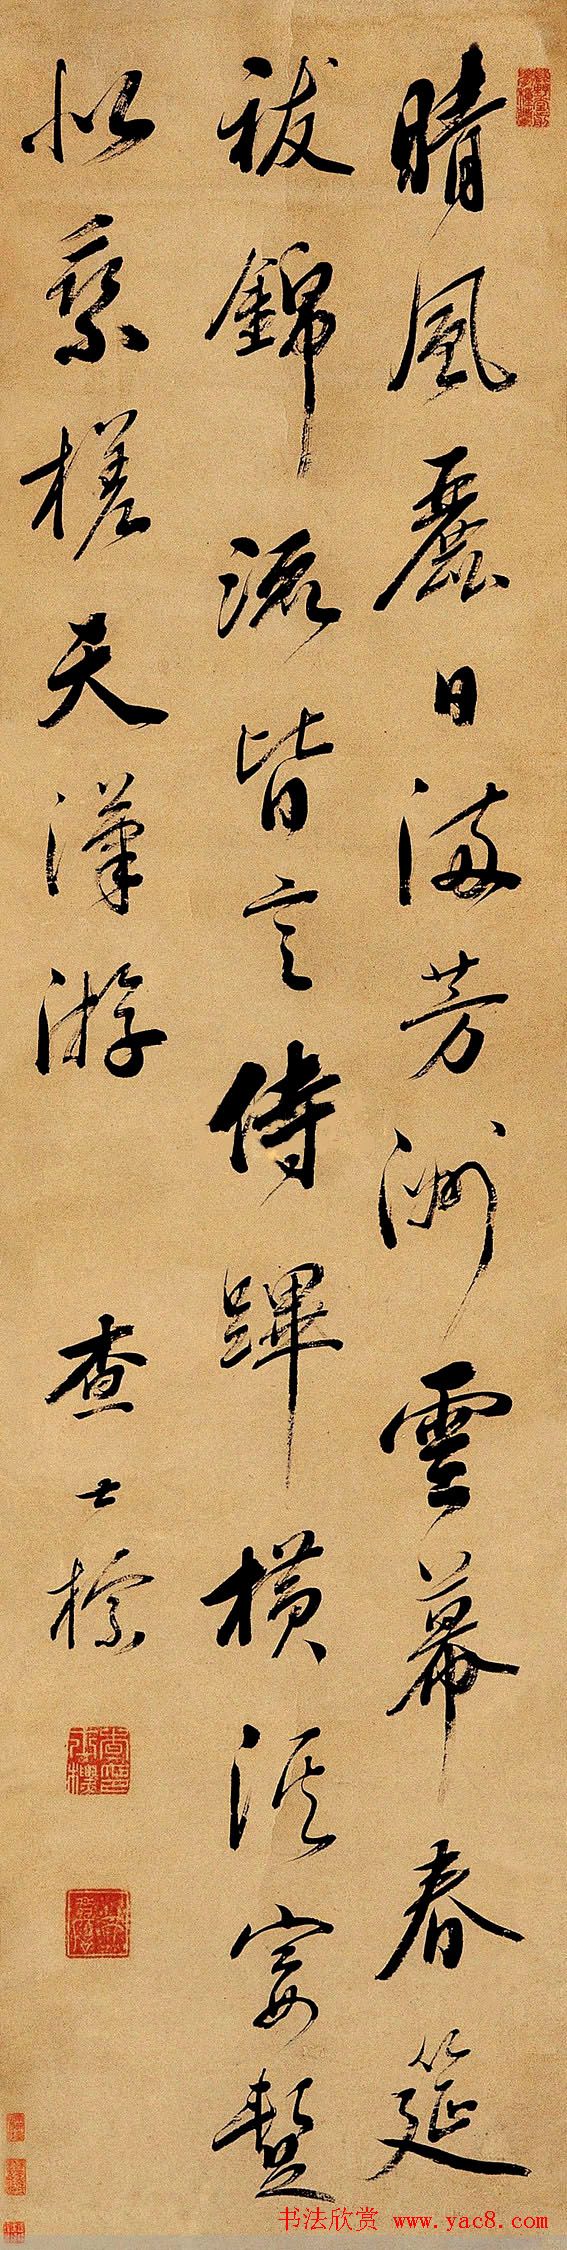 晴風麗日滿芳洲雲幕春筵
祓錦流皆言侍蹕橫汾宴暫
似乘槎天漢游
查士標
书法欣赏 www.yac8.com